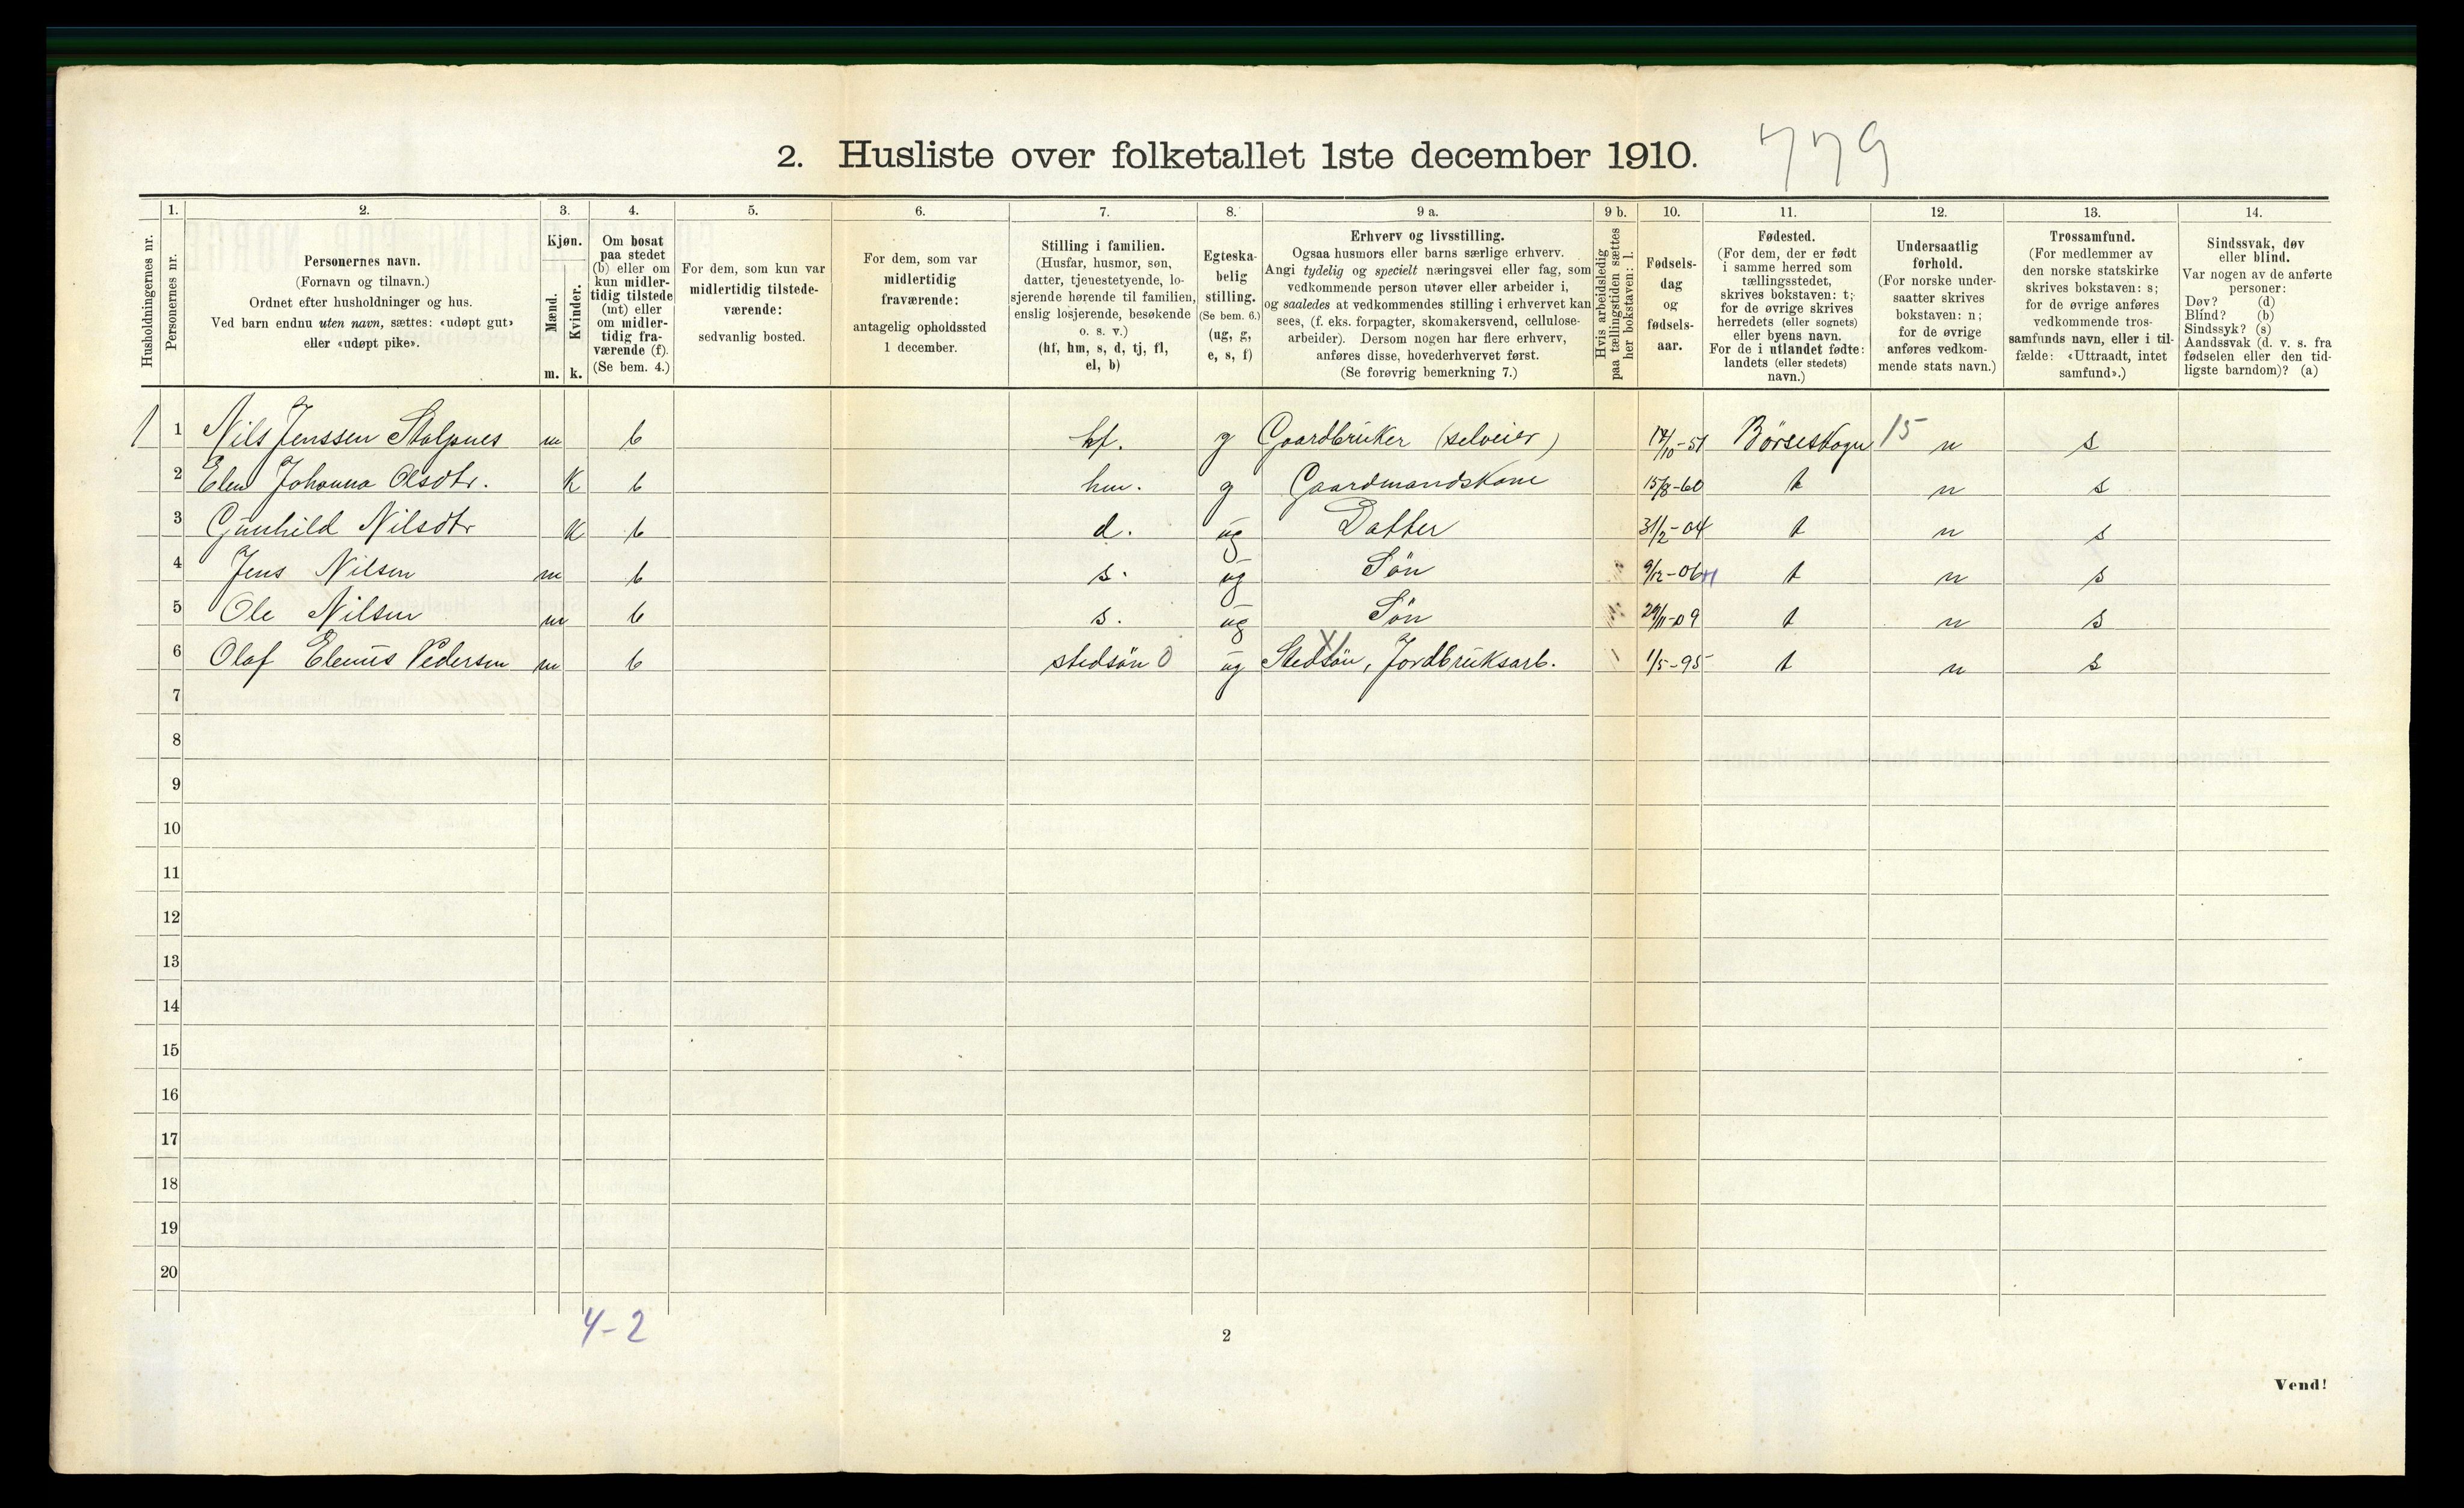 2. Husliste over folketallet 1ste december 1910. 779
Husholdningernes nr.
1.
Personernes nr.
2.
Personernes navn.
(Fornavn og tilnavn.)
Ordnet efter husholdninger og hus.
Ved barn endnu uten navn, sættes: «udøpt gut»
eller «udøpt pike».
3.
Kjøn.
Mænd.
Kvinder.
m. k.
4.
Om bosat
paa stedet
(b) eller om
kun midler-
tidig tilstede
(mt) eller
om midler-
tidig fra-
værende (f).
(Se bem. 4.)
5.
For dem, som kun var
midlertidig tilstede-
værende:
sedvanlig bosted.
6.
For dem, som var
midlertidig
fraværende:
antagelig opholdssted
1 december.
7.
Stilling i familien.
(Husfar, husmor, søn,
datter, tjenestetyende, lo-
sjerende hørende til familien,
enslig losjerende, besøkende
o. s. v.)
(hf, hm, s, d, tj, fl,
el, b)
8.
Egteska-
belig
stilling.
(Se bem. 6.)
(ug, g,
e, s, f)
9 a.
Erhverv og livsstilling.
Ogsaa husmors eller barns særlige erhverv.
Angi tydelig og specielt næringsvei eller fag, som
vedkommende person utøver eller arbeider i,
og saaledes at vedkommendes stilling i erhvervet kan
sees, (f. eks. forpagter, skomakersvend, cellulose-
arbeider). Dersom nogen har flere erhverv,
anføres disse, hovederhvervet først.
(Se forøvrig bemerkning 7.)
9 b.
Hvis arbeidsledig
paa tællingstiden sættes
her bokstaven: l.
10.
Fødsels-
dag
og
fødsels-
aar.
11.
Fødested.
(For dem, der er født
i samme herred som
tællingsstedet,
skrives bokstaven: t;
for de øvrige skrives
herredets (eller sognets)
eller byens navn.
For de i utlandet fødte:
landets (eller stedets)
navn.)
12.
Undersaatlig
forhold.
(For norske under-
saatter skrives
bokstaven: n;
for de øvrige
anføres vedkom-
mende stats navn.)
13.
Trossamfund.
(For medlemmer av
den norske statskirke
skrives bokstaven: s;
for de øvrige anføres
vedkommende tros-
samfunds navn, eller i til-
fælde: «Uttraadt, intet
samfund».)
14.
Sindssvak, døv
eller blind.
Var nogen av de anførte
personer:
Døv? (d)
Blind? (b)
Sindssyk? (s)
Aandssvak (d. v. s. fra
fødselen eller den tid-
ligste barndom)? (a)
1 1 Nils Jenssen Stolpnes m b hf. g Gaardbruker (selveier) 10-51 Børseskogn 15 n s
2 Elen Johanna Olsdtr. K b hm. g Gaardmandskone 15/8-60 t n s
3 Gunhild Nilsdtr K b d. ug Datter 31/2-04 t n s
4 Jens Nilsen m b s. ug Søn 9/12-06 t n s
5 Ole Nilsen m b s. ug Søn 29/11-09 t n s
6 Olaf Elenus Pedersen m b stedsøn 0 ug Stedsøn, Jordbruksarb. 1/5-95 t n s
7
8
9
10
11
12
13
14
15
16
17
18
19
20
4-2
2
Vend!